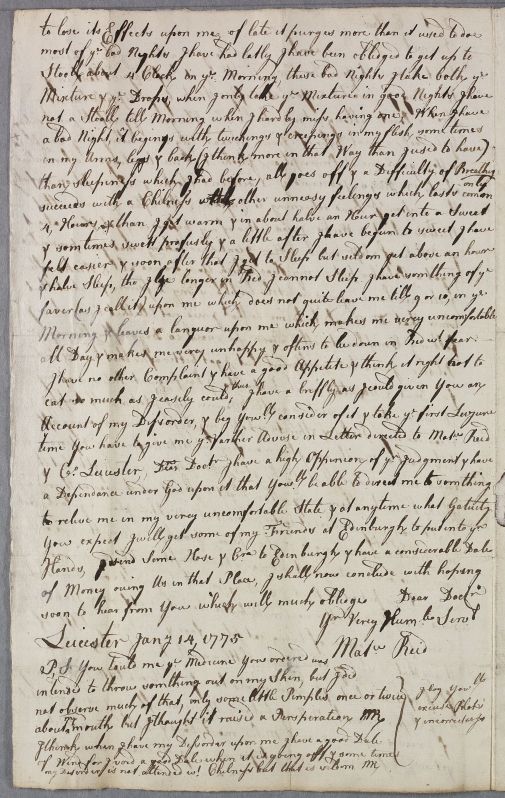 to lose its Effects upon me of late it purges more than it used to doe
most of yᵉ bad Nights I have had latly I have been obliged to get up to
Stoole about 4 Clock In yᵉ Morning these bad Nights I take both yᵉ
Mixture & yᵉ Drops, when I only take yᵉ Mixture in good Nights I have
not a Stoole till Morning when I hardly miss having one, When I have
a bad Night it begings with twichings & creepings in my flesh, some times
in my Arms, legs & back I think more in that Way than I used to have)
than sleepiness which I had before, all goes off & a Difficulty of Breathing
succeeds with a Chilness & other unneasy feelings which lasts comon only
4 Hours, than I get warm & in about halve an Hour get into a Sweat
& somtimes swett profusly & a little after I have begun to sweat I have
felt easier & soon after that I get to Sleep but seldom get above an hour
& halve Sleep, tho I lye longer in Bed I cannot Sleep. I have somthing of yᵉ
faver (as I call it) upon me which does not quite leave me till 9 or 10, in yᵉ
Morning & leaves a languor upon me which makes me verey uncomfortable
all Day & makes me verey unhappy & oftens to lie down in Bed wᵗ fear.
I have no other Complaint & have a good Appetite & think it right not to
eat so much as I easely could, I have thus a breffly as I could given You an
Account of my Disorder, & beg Youˡˡ consider of it & take yᵉ first Leizure
time You have to give me yʳ farther Advise in Letter directed to Matʷ Reid
& Cᵒ Leicester Dear Docʳ I have a high Oppinion of yʳ Judgment & have
a Dependance under God upon it that Youˡˡ be able to direct me to somthing
to releive me in my verey uncomfortable State & at any time what Gatuity
You expect I will get some of my Friends at Edinburgh to put into yʳ
Hands, I send some Hose & Cra to Edinburgh & have a considerable Dale
of Money owing Us in that Place, I shall now conclude with hopeing
soon to hear from You which will much oblidge Dear Doctʳ
Yʳ Verey Humˡᵉ Servᵗ
Leicester Janʸ 14, 1775
Matʷ Reid
P.S. You tould me yᵉ Medicine You orderd was
intended to throw somthing out on my Skin, but I did
not observe much of that, only some little Pimples once or twice
about my mouth but I thought it raised a Persperation MR
I think when I have my Disorder upon me I have a good Dale
of Wind for I void a good Dale when it is going off & some times
my disorder is not attended wᵗ Chilness but that is seldom MR
I beg Youˡˡ
excuse Blots
& incorrectness